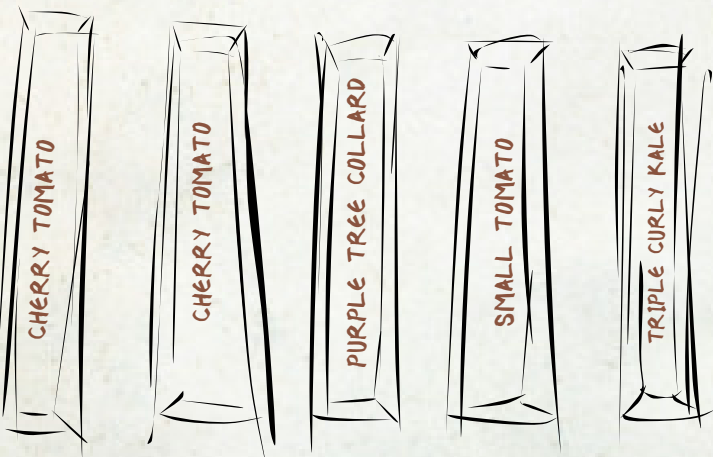 CHERRY TOMATO
CHERRY TOMATO
PURPLE TREE COLLARD
SMALL TOMATO
TRIPLE CURLY KALE